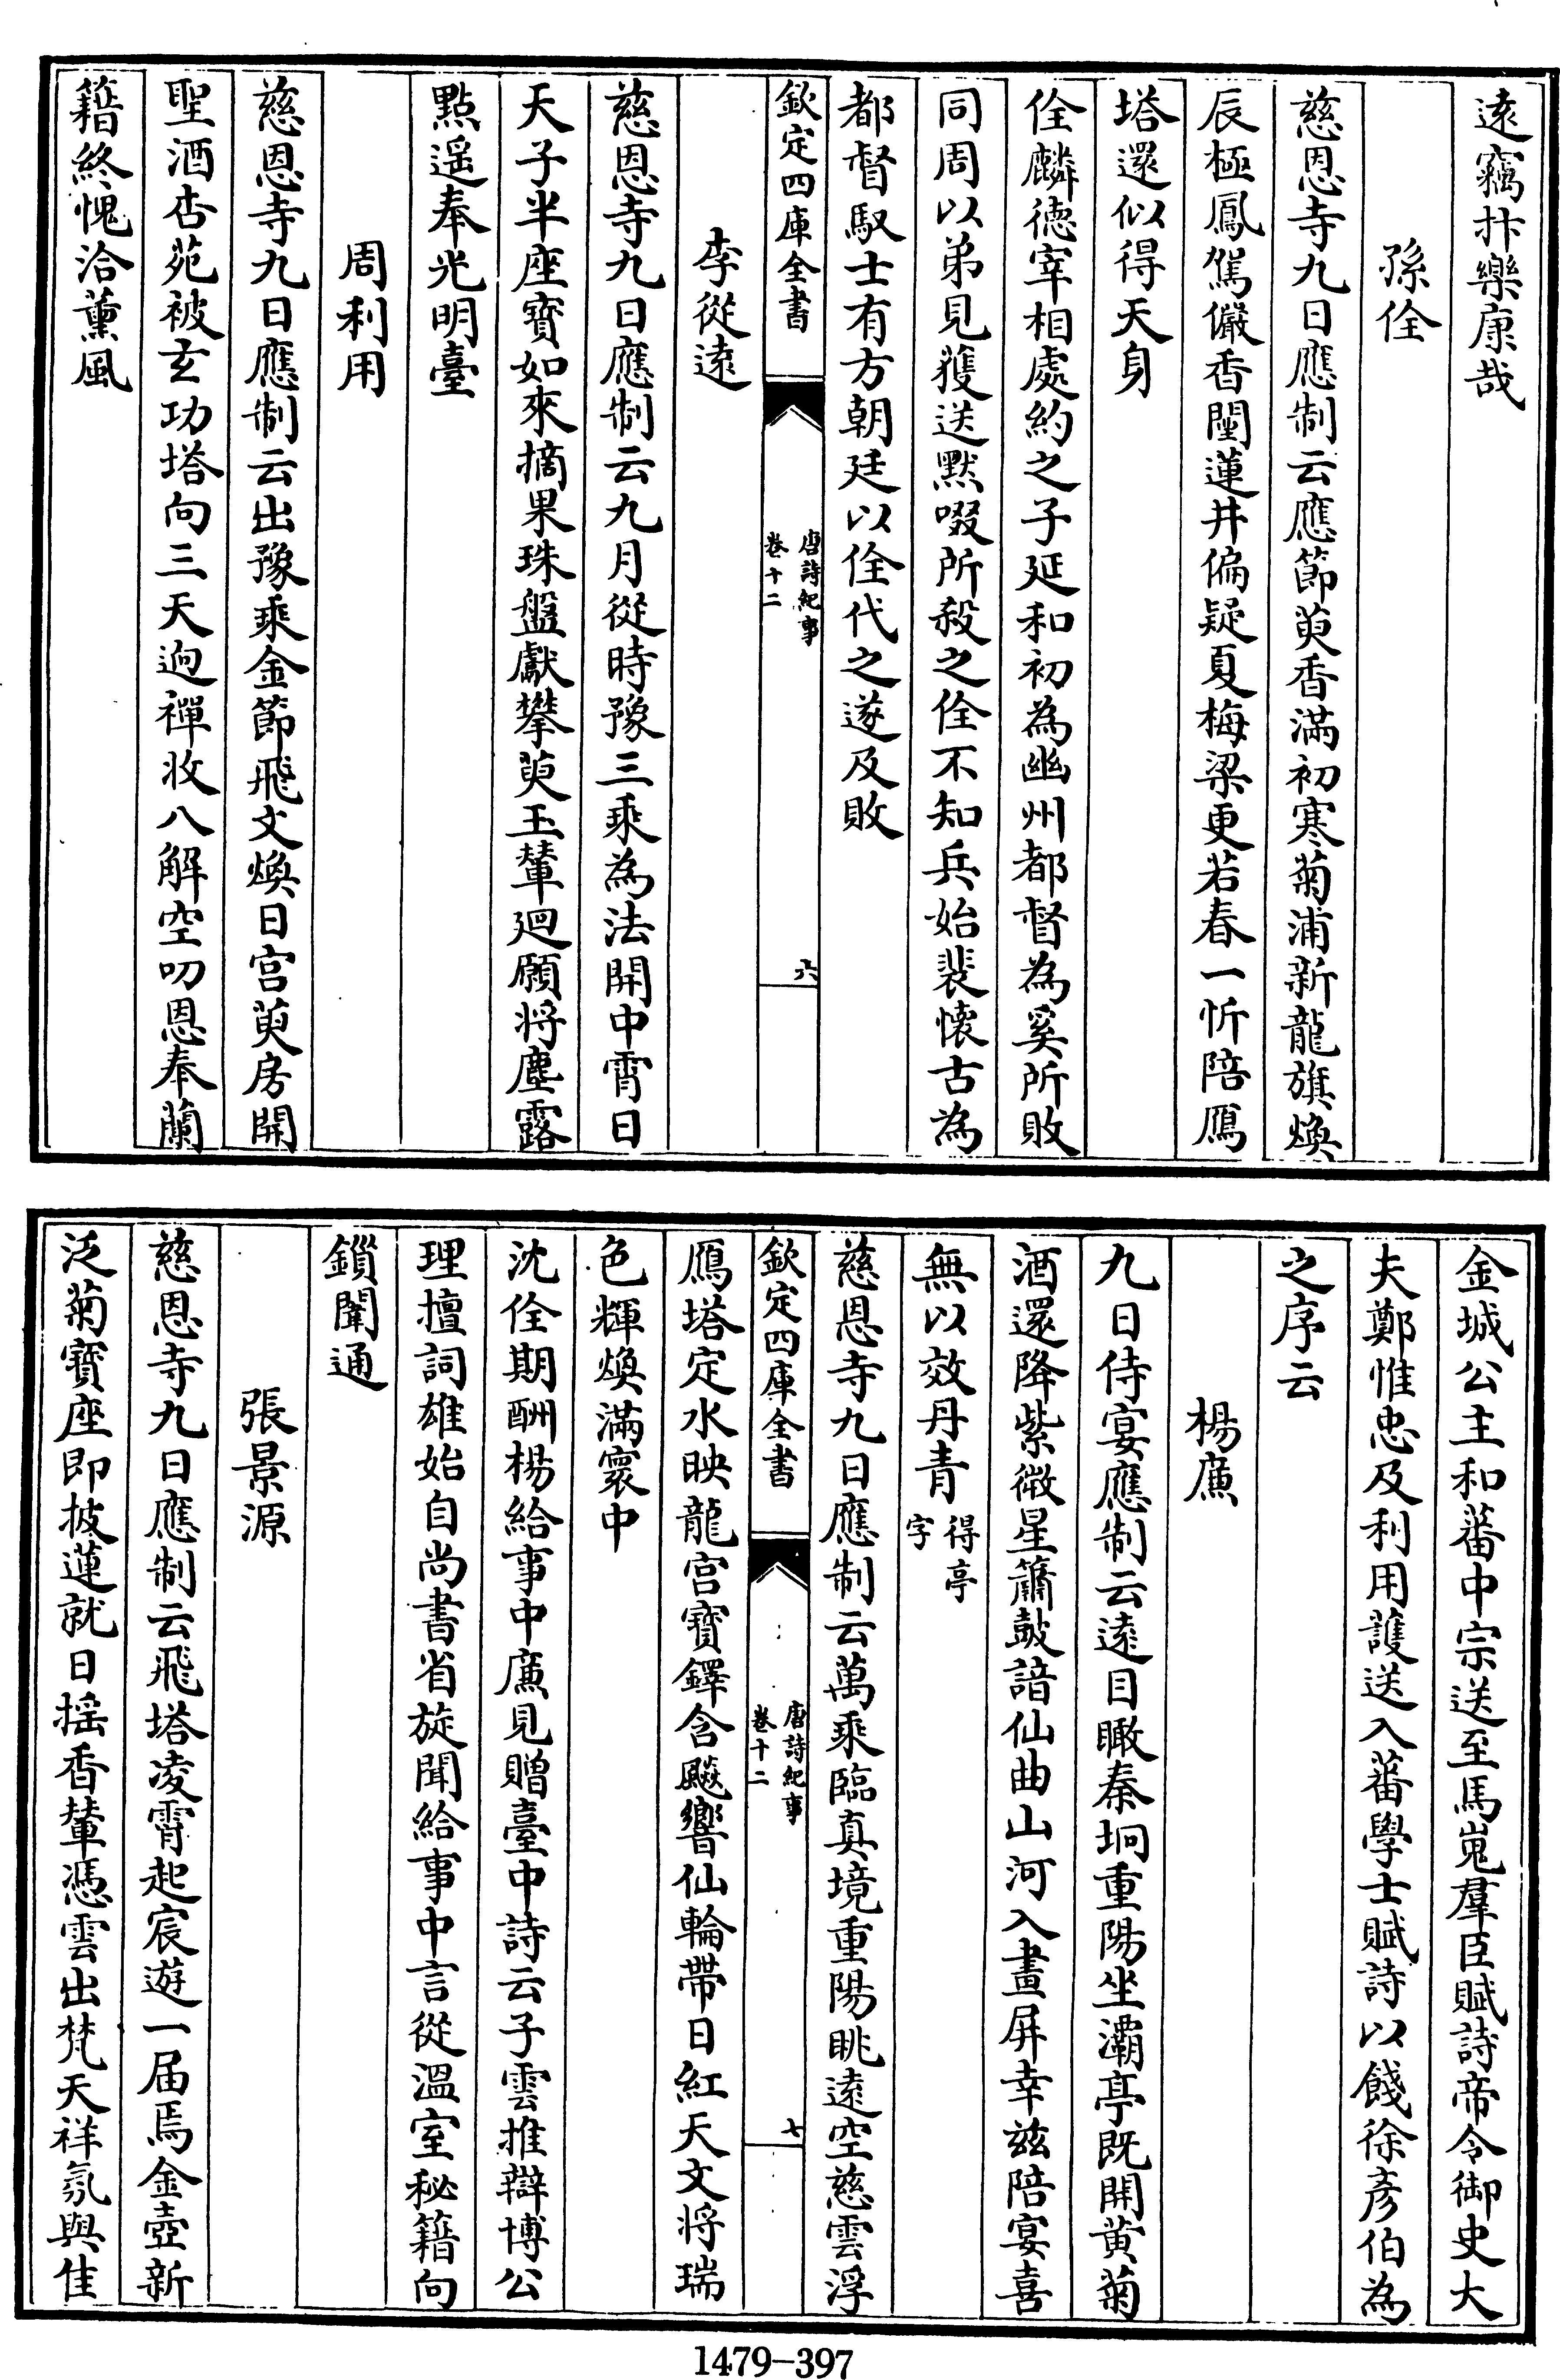 遠竊抃樂康哉
孫佺
慈恩寺九日應制云應節萸香滿初寒菊浦新龍旗煥
辰極鳳駕儼香闉蓮井偏疑夏梅梁更若春一忻陪鴈
塔還似得天身
佺麟德宰相處約之子延和初為幽州都督為奚所敗
同周以弟見獲送默啜所殺之佺不知兵始裴懷古為
都督馭士有方朝廷以佺代之遂及敗
欽定四庫全書
唐詩紀事
卷十二
六
李從遠
慈恩寺九日應制云九月從時豫三乘為法開中霄日
天子半座寳如來摘果珠盤獻攀萸玉輦廻願將塵露
點遥奉光明臺
周利用
慈恩寺九日應制云出豫乘金節飛文煥日宫萸房開
聖酒杏苑被玄功塔向三天逈禪收八解空叨恩奉蘭
籍終愧洽薰風
金城公主和蕃中宗送至馬嵬羣臣賦詩帝令御史大
夫鄭惟忠及利用護送入蕃學士賦詩以餞徐彦伯為
之序云
楊廉
九日侍宴應制云遠目瞰秦坰重陽坐灞亭既開黄菊
酒還降紫微星簫鼓諳仙曲山河入畫屏幸兹陪宴喜
無以效丹青得亭
字
慈恩寺九日應制云萬乘臨真境重陽眺遠空慈雲浮
欽定四庫全書
唐詩紀事
卷十二
七
鴈塔定水映龍宫寳鐸含飈響仙輪帶日紅天文將瑞
色輝煥滿寰中
沈佺期酬楊給事中廉見贈臺中詩云子雲推辯博公
理擅詞雄始自尚書省旋聞給事中言從溫室秘籍向
鎻闈通
張景源
慈恩寺九日應制云飛塔凌霄起宸遊一届焉金壺新
泛菊寳座即披蓮就日揺香輦憑雲出梵天祥氛與佳
1479-397